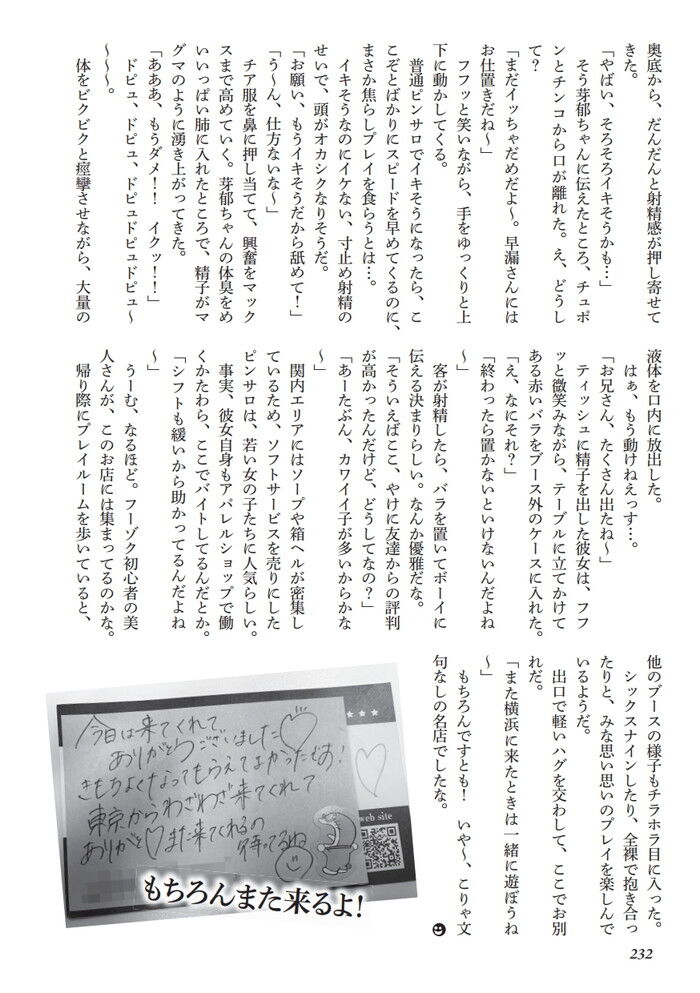 奥底から、だんだんと射精感が押し寄せて
きた。
「やばい、そろそろイキそうかも…」
そう芽郁ちゃんに伝えたところ、チュポ
ンとチンコから口が離れた。え、どうし
て？
「まだイッちゃだめだよ〜。早漏さんには
お仕置きだね〜」
フフッと笑いながら、手をゆっくりと上
下に動かしてくる。
普通ピンサロでイキそうになったら、こ
こぞとばかりにスピードを早めてくるのに、
まさか焦らしプレイを食らうとは…。
イキそうなのにイケない、寸止め射精の
せいで、頭がオカシクなりそうだ。
「お願い、もうイキそうだから舐めて！」
「う〜ん、仕方ないな〜」
チア服を鼻に押し当てて、興奮をマック
スまで高めていく。芽郁ちゃんの体臭をめ
いいっぱい肺に入れたところで、精子がマ
グマのように湧き上がってきた。
「あああ、もうダメ！！　イクッ！！」
ドピュ、ドピュ、ドピュドピュドピュ〜
〜〜〜。
体をビクビクと痙攣させながら、大量の
液体を口内に放出した。
はぁ、もう動けねえっす…。
「お兄さん、たくさん出たね〜」
ティッシュに精子を出した彼女は、フフ
ッと微笑みながら、テーブルに立てかけて
ある赤いバラをブース外のケースに入れた。
「え、なにそれ？」
「終わったら置かないといけないんだよね
〜」
客が射精したら、バラを置いてボーイに
伝える決まりらしい。なんか優雅だな。
「そういえばここ、やけに友達からの評判
が高かったんだけど、どうしてなの？」
「あーたぶん、カワイイ子が多いからかな
〜」
関内エリアにはソープや箱ヘルが密集し
ているため、ソフトサービスを売りにした
ピンサロは、若い女の子たちに人気らしい。
事実、彼女自身もアパレルショップで働
くかたわら、ここでバイトしてるんだとか。
「シフトも緩いから助かってるんだよね
〜」
うーむ、なるほど。フーゾク初心者の美
人さんが、このお店には集まってるのかな。
帰り際にプレイルームを歩いていると、
他のブースの様子もチラホラ目に入った。
シックスナインしたり、全裸で抱き合っ
たりと、みな思い思いのプレイを楽しんで
いるようだ。
出口で軽いハグを交わして、ここでお別
れだ。
「また横浜に来たときは一緒に遊ぼうね
〜」
もちろんですとも！　いや〜、こりゃ文
句なしの名店でしたな。
今日は来てくれて
ありがとうございました♡
きもちよくなってもらえてよかったです！
東京からわざわざ来てくれて
ありがと♡また来てくれるの
待ってるね
web site
もちろんまた来るよ！
232